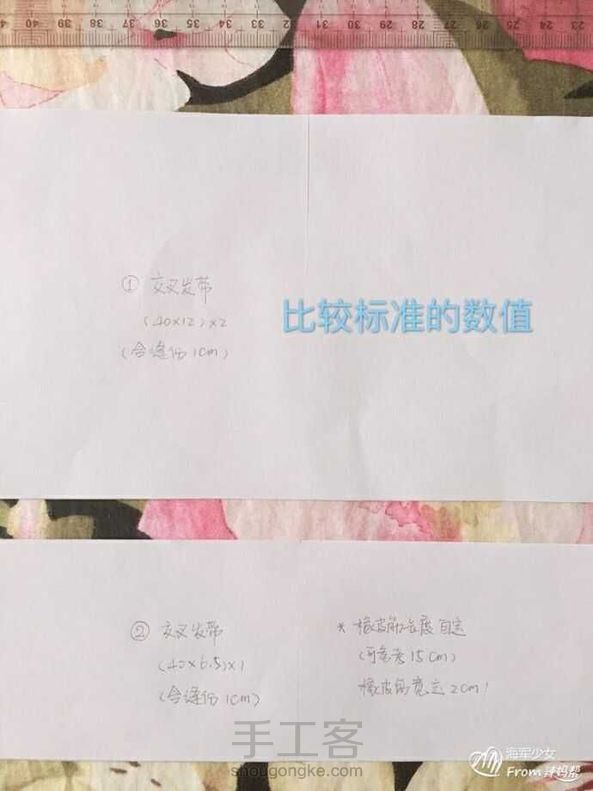 40 39 38 37 36 35 34 33 32 31 30 29 28 27 26 25 24 23
① 交叉发带
(40×12)×2
(含缝份1cm)
比较标准的数值
② 交叉发带
(40×6.5)×1
(含缝份1cm)
* 橡皮筋长度自定
(可参考15cm)
橡皮筋宽定2cm
手工客
shougongke.com
海军少女
From 拼妈帮